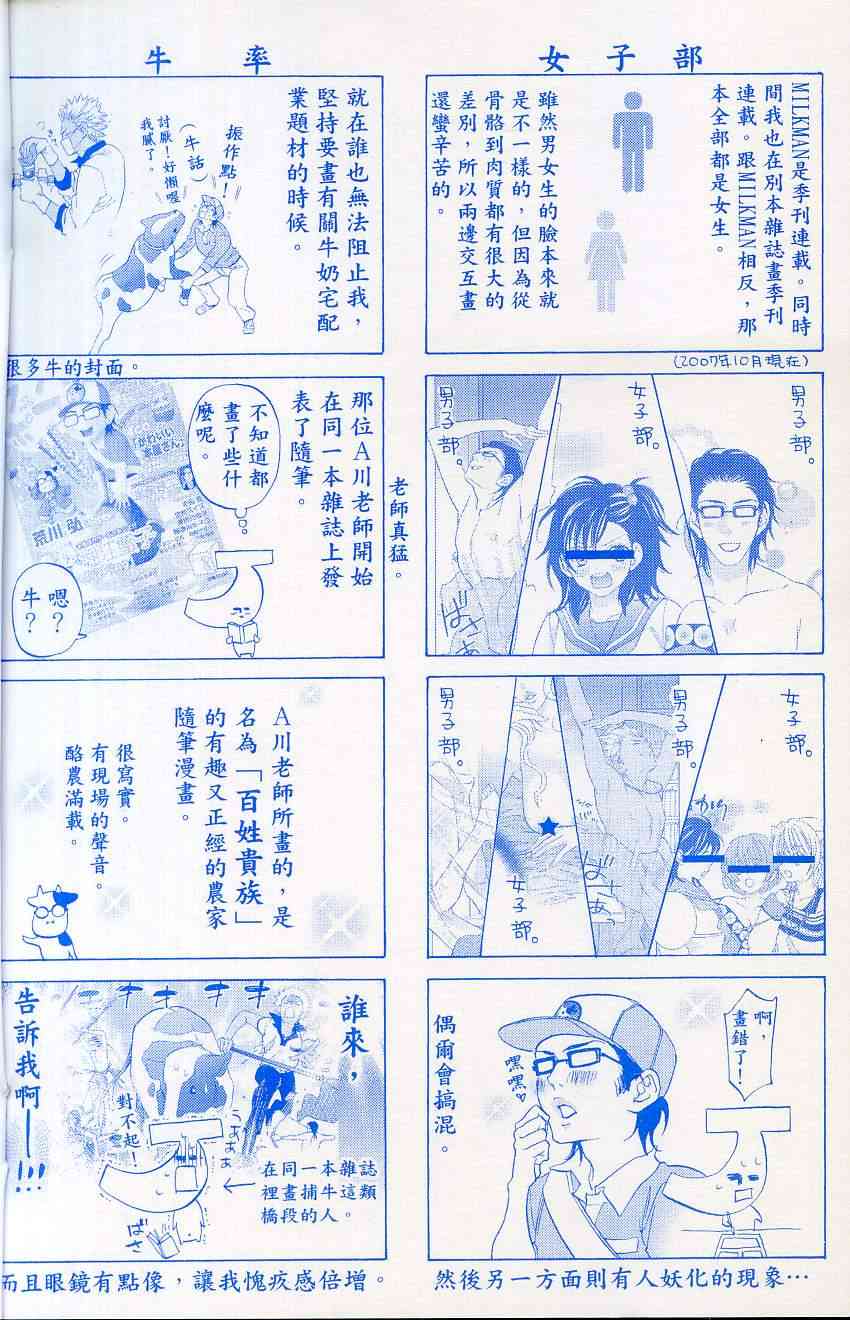 女子部
MILKMAN是季刊連載。同時
間我也在別本雜誌畫季刊
連載。跟MILKMAN相反，那
本全部都是女生。
雖然男女生的臉本來就
是不一樣的，但因為從
骨骼到肉質都有很大的
差別，所以兩邊交互畫
還蠻辛苦的。
(2007年10月現在)
男子部。
女子部。
男子部。
ばさぁ
女子部。
わぃゎぃ
男子部。
ばさぁ。
女子部。
男子部。
啊，
畫錯了！
嘿嘿
偶爾會搞混。
然後另一方面則有人妖化的現象…
牛率
就在誰也無法阻止我，
堅持要畫有關牛奶宅配
業題材的時候。
振作點！
（牛話）
討厭！好懶喔
我膩了。
很多牛的封面。
那位A川老師開始
在同一本雜誌上發
表了隨筆。
老師真猛。
不知道都
畫了些什
麼呢。
荒川弘
嗯？
牛？
A川老師所畫的，是
名為「百姓貴族」
的有趣又正經的農家
隨筆漫畫。
很寫實。
有現場的聲音。
酪農滿載。
誰來，
告訴我啊ー!!!
キキキキ
うぁぁぁぁ
對不起！
ばさ
在同一本雜誌
裡畫捕牛這類
橋段的人。
而且眼鏡有點像，讓我愧疚感倍增。